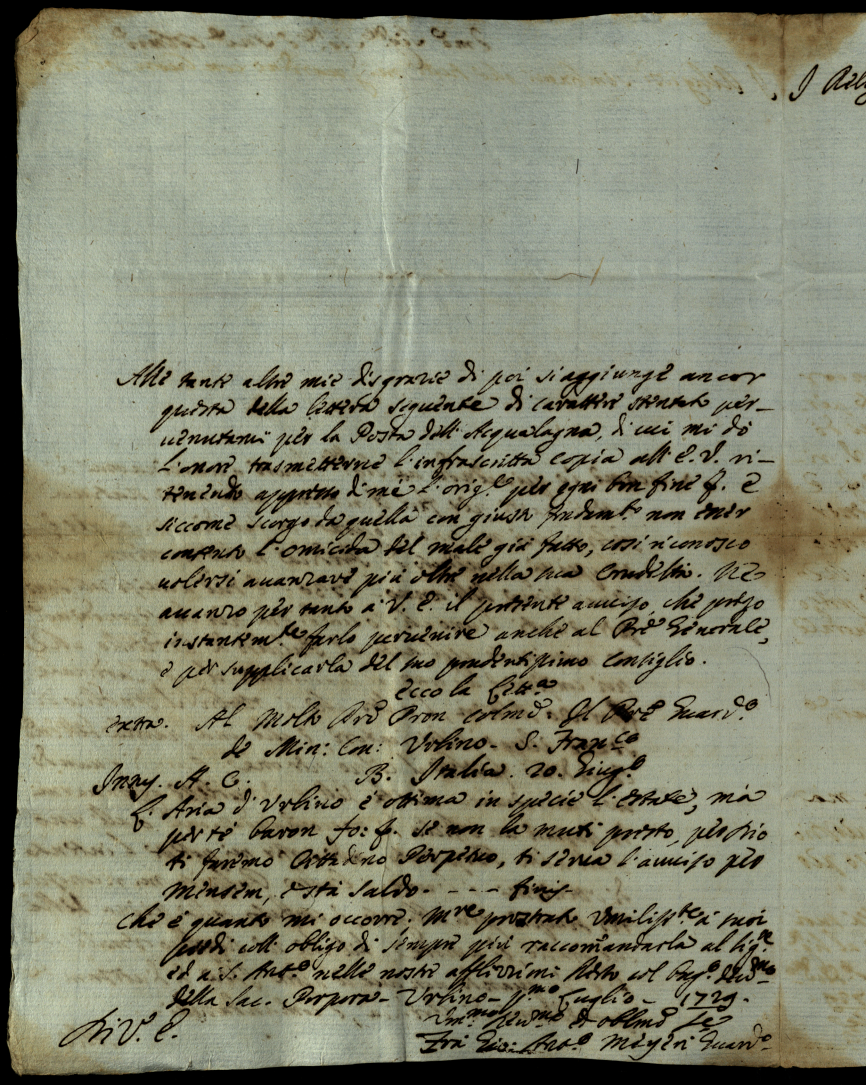 Alle tante altre mie disgrazie di poi si aggiunge ancor
questa della lettera seguente di carattere stentato per-
venutami per la Posta dell'Acqualagna, di cui mi do
l'onore trasmetterne l'infrascritta copia all'E. V. ri-
tenendo appresso di me l'orig.le per ogni bon fine &. E
siccome scorgo da quella con giusto fondam.to non esser
contento l'omicida del male già fatto, così riconosco
volersi avanzare più oltre nella sua crudeltà. Ne
avanzo per tanto a V. E. il presente avviso, che prego
instantem.te farlo pervenire anche al Pre Generale,
e per supplicarla del suo prudentissimo consiglio.
ecco la lett.a
extra. Al Molto Rdo Pron colmo. Il Pre Guard.o
de Min: Con: Urbino - S. Fran.co
A. C. B. Italia. 20. Giug.o
L'Aria d'Urbino è ottima in specie l'estate, ma
per te baron fo: f. se non la muti presto, per Dio
ti faremo Cittadino Perpetuo, ti serva l'avviso per
mensem, e stà saldo. - - - finis
che è quanto mi occorre; m.re prostrato umilis.te a suoi
piedi coll'obligo di sempre più raccomandarla al Sig.re
ed a S. Ant.o nelle nostre afflizzioni Resto col
della Sac. Porpora - Urbino - p.mo Luglio - 1729.
Di V. E.
Um.mo Dev.mo ed oblmo Se
Fra Gio: Ant.o Guard.o
I